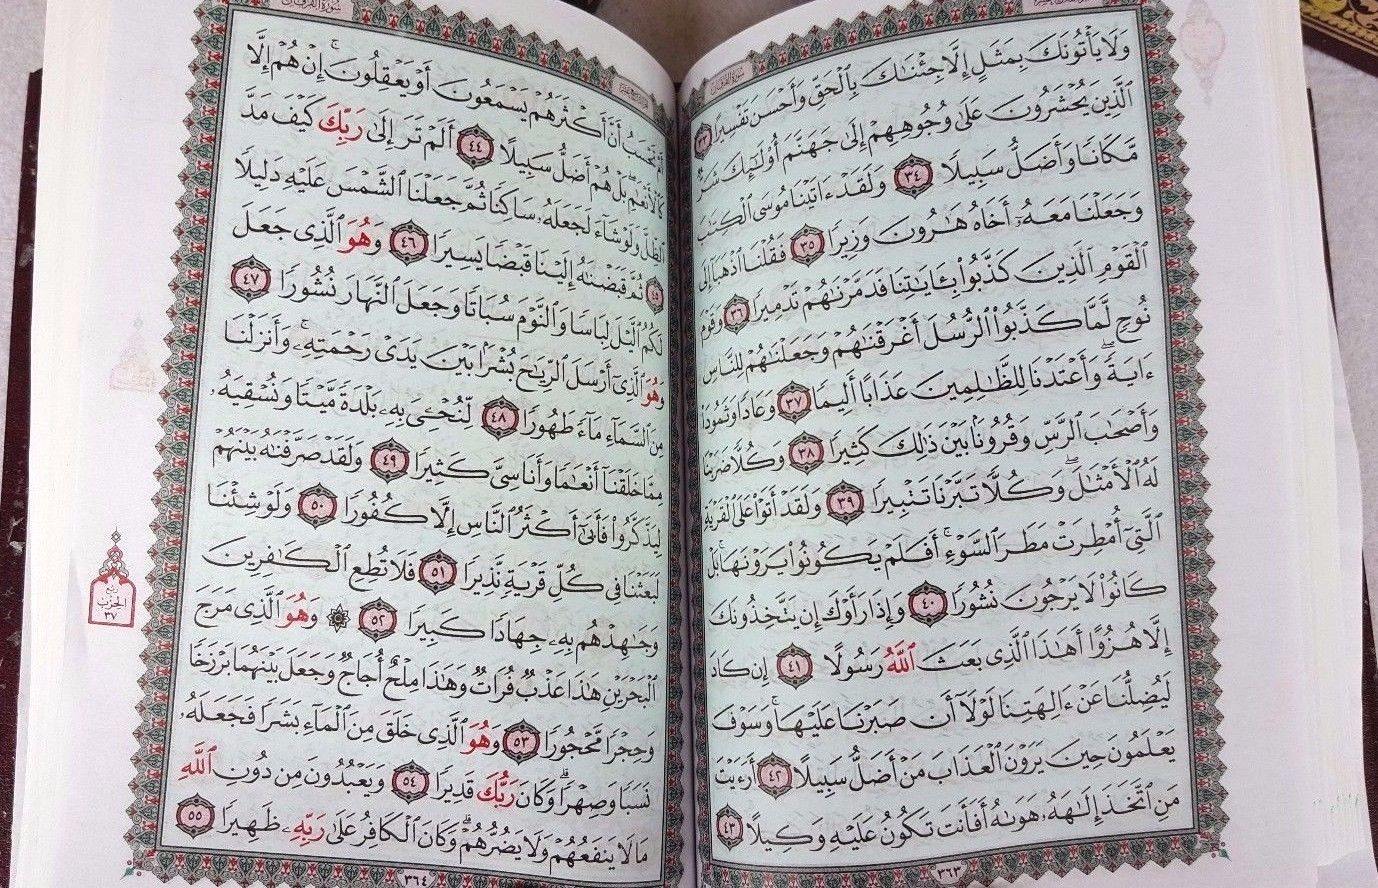 سورة الفرقان
وَلَا يَأْتُونَكَ بِمَثَلٍ إِلَّا جِئْنَٰكَ بِٱلْحَقِّ وَأَحْسَنَ تَفْسِيرًا ٣٣
ٱلَّذِينَ يُحْشَرُونَ عَلَىٰ وُجُوهِهِمْ إِلَىٰ جَهَنَّمَ أُو۟لَٰٓئِكَ شَرٌّ
مَّكَانًا وَأَضَلُّ سَبِيلًا ٣٤ وَلَقَدْ ءَاتَيْنَا مُوسَى ٱلْكِتَٰبَ
وَجَعَلْنَا مَعَهُۥٓ أَخَاهُ هَٰرُونَ وَزِيرًا ٣٥ فَقُلْنَا ٱذْهَبَآ إِلَى
ٱلْقَوْمِ ٱلَّذِينَ كَذَّبُوا۟ بِـَٔايَٰتِنَا فَدَمَّرْنَٰهُمْ تَدْمِيرًا ٣٦ وَقَوْمَ
نُوحٍ لَّمَّا كَذَّبُوا۟ ٱلرُّسُلَ أَغْرَقْنَٰهُمْ وَجَعَلْنَٰهُمْ لِلنَّاسِ
ءَايَةً ۖ وَأَعْتَدْنَا لِلظَّٰلِمِينَ عَذَابًا أَلِيمًا ٣٧ وَعَادًا وَثَمُودَا۟
وَأَصْحَٰبَ ٱلرَّسِّ وَقُرُونًۢا بَيْنَ ذَٰلِكَ كَثِيرًا ٣٨ وَكُلًّا ضَرَبْنَا
لَهُ ٱلْأَمْثَٰلَ ۖ وَكُلًّا تَبَّرْنَا تَتْبِيرًا ٣٩ وَلَقَدْ أَتَوْا۟ عَلَى ٱلْقَرْيَةِ
ٱلَّتِىٓ أُمْطِرَتْ مَطَرَ ٱلسَّوْءِ ۚ أَفَلَمْ يَكُونُوا۟ يَرَوْنَهَا ۚ بَلْ
كَانُوا۟ لَا يَرْجُونَ نُشُورًا ٤٠ وَإِذَا رَأَوْكَ إِن يَتَّخِذُونَكَ
إِلَّا هُزُوًا أَهَٰذَا ٱلَّذِى بَعَثَ ٱللَّهُ رَسُولًا ٤١ إِن كَادَ
لَيُضِلُّنَا عَنْ ءَالِهَتِنَا لَوْلَآ أَن صَبَرْنَا عَلَيْهَا ۚ وَسَوْفَ
يَعْلَمُونَ حِينَ يَرَوْنَ ٱلْعَذَابَ مَنْ أَضَلُّ سَبِيلًا ٤٢ أَرَءَيْتَ
مَنِ ٱتَّخَذَ إِلَٰهَهُۥ هَوَىٰهُ أَفَأَنتَ تَكُونُ عَلَيْهِ وَكِيلًا ٤٣
٣٦٣
سُورَةُ الفُرْقَان
أَمْ تَحْسَبُ أَنَّ أَكْثَرَهُمْ يَسْمَعُونَ أَوْ يَعْقِلُونَ ۚ إِنْ هُمْ إِلَّا
كَٱلْأَنْعَٰمِ ۖ بَلْ هُمْ أَضَلُّ سَبِيلًا ٤٤ أَلَمْ تَرَ إِلَىٰ رَبِّكَ كَيْفَ مَدَّ
ٱلظِّلَّ وَلَوْ شَآءَ لَجَعَلَهُۥ سَاكِنًا ثُمَّ جَعَلْنَا ٱلشَّمْسَ عَلَيْهِ دَلِيلًا
٤٥ ثُمَّ قَبَضْنَٰهُ إِلَيْنَا قَبْضًا يَسِيرًا ٤٦ وَهُوَ ٱلَّذِى جَعَلَ
لَكُمُ ٱلَّيْلَ لِبَاسًا وَٱلنَّوْمَ سُبَاتًا وَجَعَلَ ٱلنَّهَارَ نُشُورًا ٤٧
وَهُوَ ٱلَّذِىٓ أَرْسَلَ ٱلرِّيَٰحَ بُشْرًۢا بَيْنَ يَدَىْ رَحْمَتِهِۦ ۚ وَأَنزَلْنَا
مِنَ ٱلسَّمَآءِ مَآءً طَهُورًا ٤٨ لِّنُحْـِۧىَ بِهِۦ بَلْدَةً مَّيْتًا وَنُسْقِيَهُۥ
مِمَّا خَلَقْنَآ أَنْعَٰمًا وَأَنَاسِىَّ كَثِيرًا ٤٩ وَلَقَدْ صَرَّفْنَٰهُ بَيْنَهُمْ
لِيَذَّكَّرُوا۟ فَأَبَىٰٓ أَكْثَرُ ٱلنَّاسِ إِلَّا كُفُورًا ٥٠ وَلَوْ شِئْنَا
لَبَعَثْنَا فِى كُلِّ قَرْيَةٍ نَّذِيرًا ٥١ فَلَا تُطِعِ ٱلْكَٰفِرِينَ
وَجَٰهِدْهُم بِهِۦ جِهَادًا كَبِيرًا ٥٢ ۞ وَهُوَ ٱلَّذِى مَرَجَ
ٱلْبَحْرَيْنِ هَٰذَا عَذْبٌ فُرَاتٌ وَهَٰذَا مِلْحٌ أُجَاجٌ وَجَعَلَ بَيْنَهُمَا بَرْزَخًا
وَحِجْرًا مَّحْجُورًا ٥٣ وَهُوَ ٱلَّذِى خَلَقَ مِنَ ٱلْمَآءِ بَشَرًا فَجَعَلَهُۥ
نَسَبًا وَصِهْرًا ۗ وَكَانَ رَبُّكَ قَدِيرًا ٥٤ وَيَعْبُدُونَ مِن دُونِ ٱللَّهِ
مَا لَا يَنفَعُهُمْ وَلَا يَضُرُّهُمْ ۗ وَكَانَ ٱلْكَافِرُ عَلَىٰ رَبِّهِۦ ظَهِيرًا ٥٥
٣٦٤
ربع
الحزب
٣٧